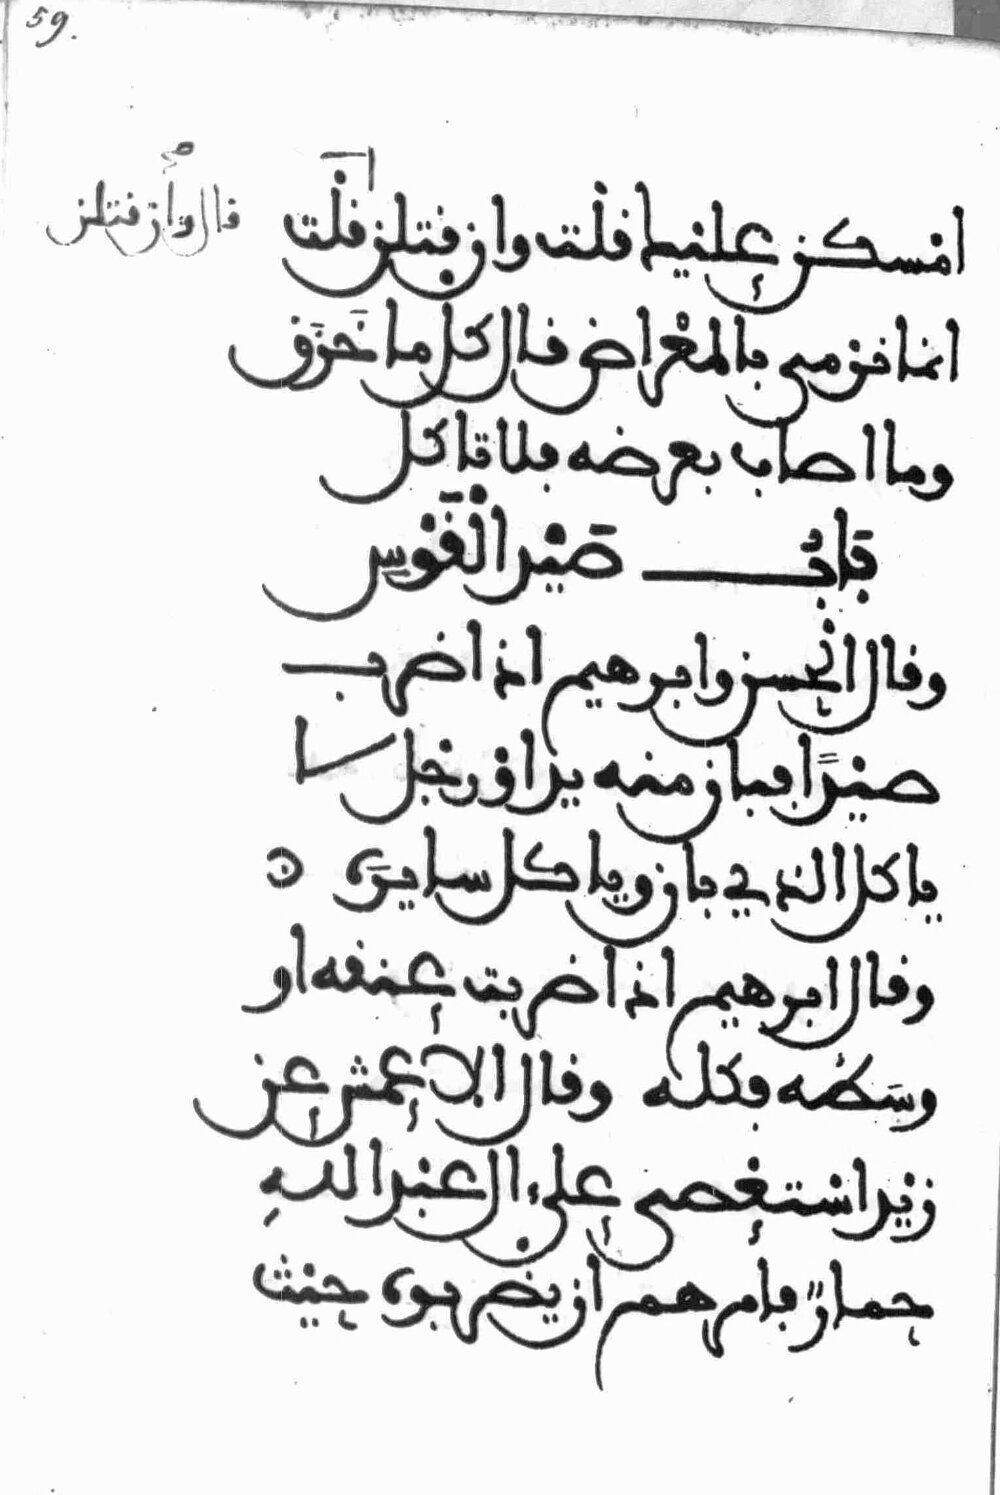 59.
قال وان قتلن
امسكن عليك قلت وان قتلن قلت
انما نرمي بالمعراض قال كل ما خزق
وما اصاب بعرضه فلا تاكل
باب صيد القوس
وقال الحسن وابرهيم اذا ضرب
صيدا فبان منه يد او رجل لا
ياكل الذي بان وياكل سايره
وقال ابرهيم اذا ضربت عنقه او
وسطه فكله وقال الاعمش عن
زيد استعصى على ال عبد الله
حمار فامرهم ان يضربوه حيث